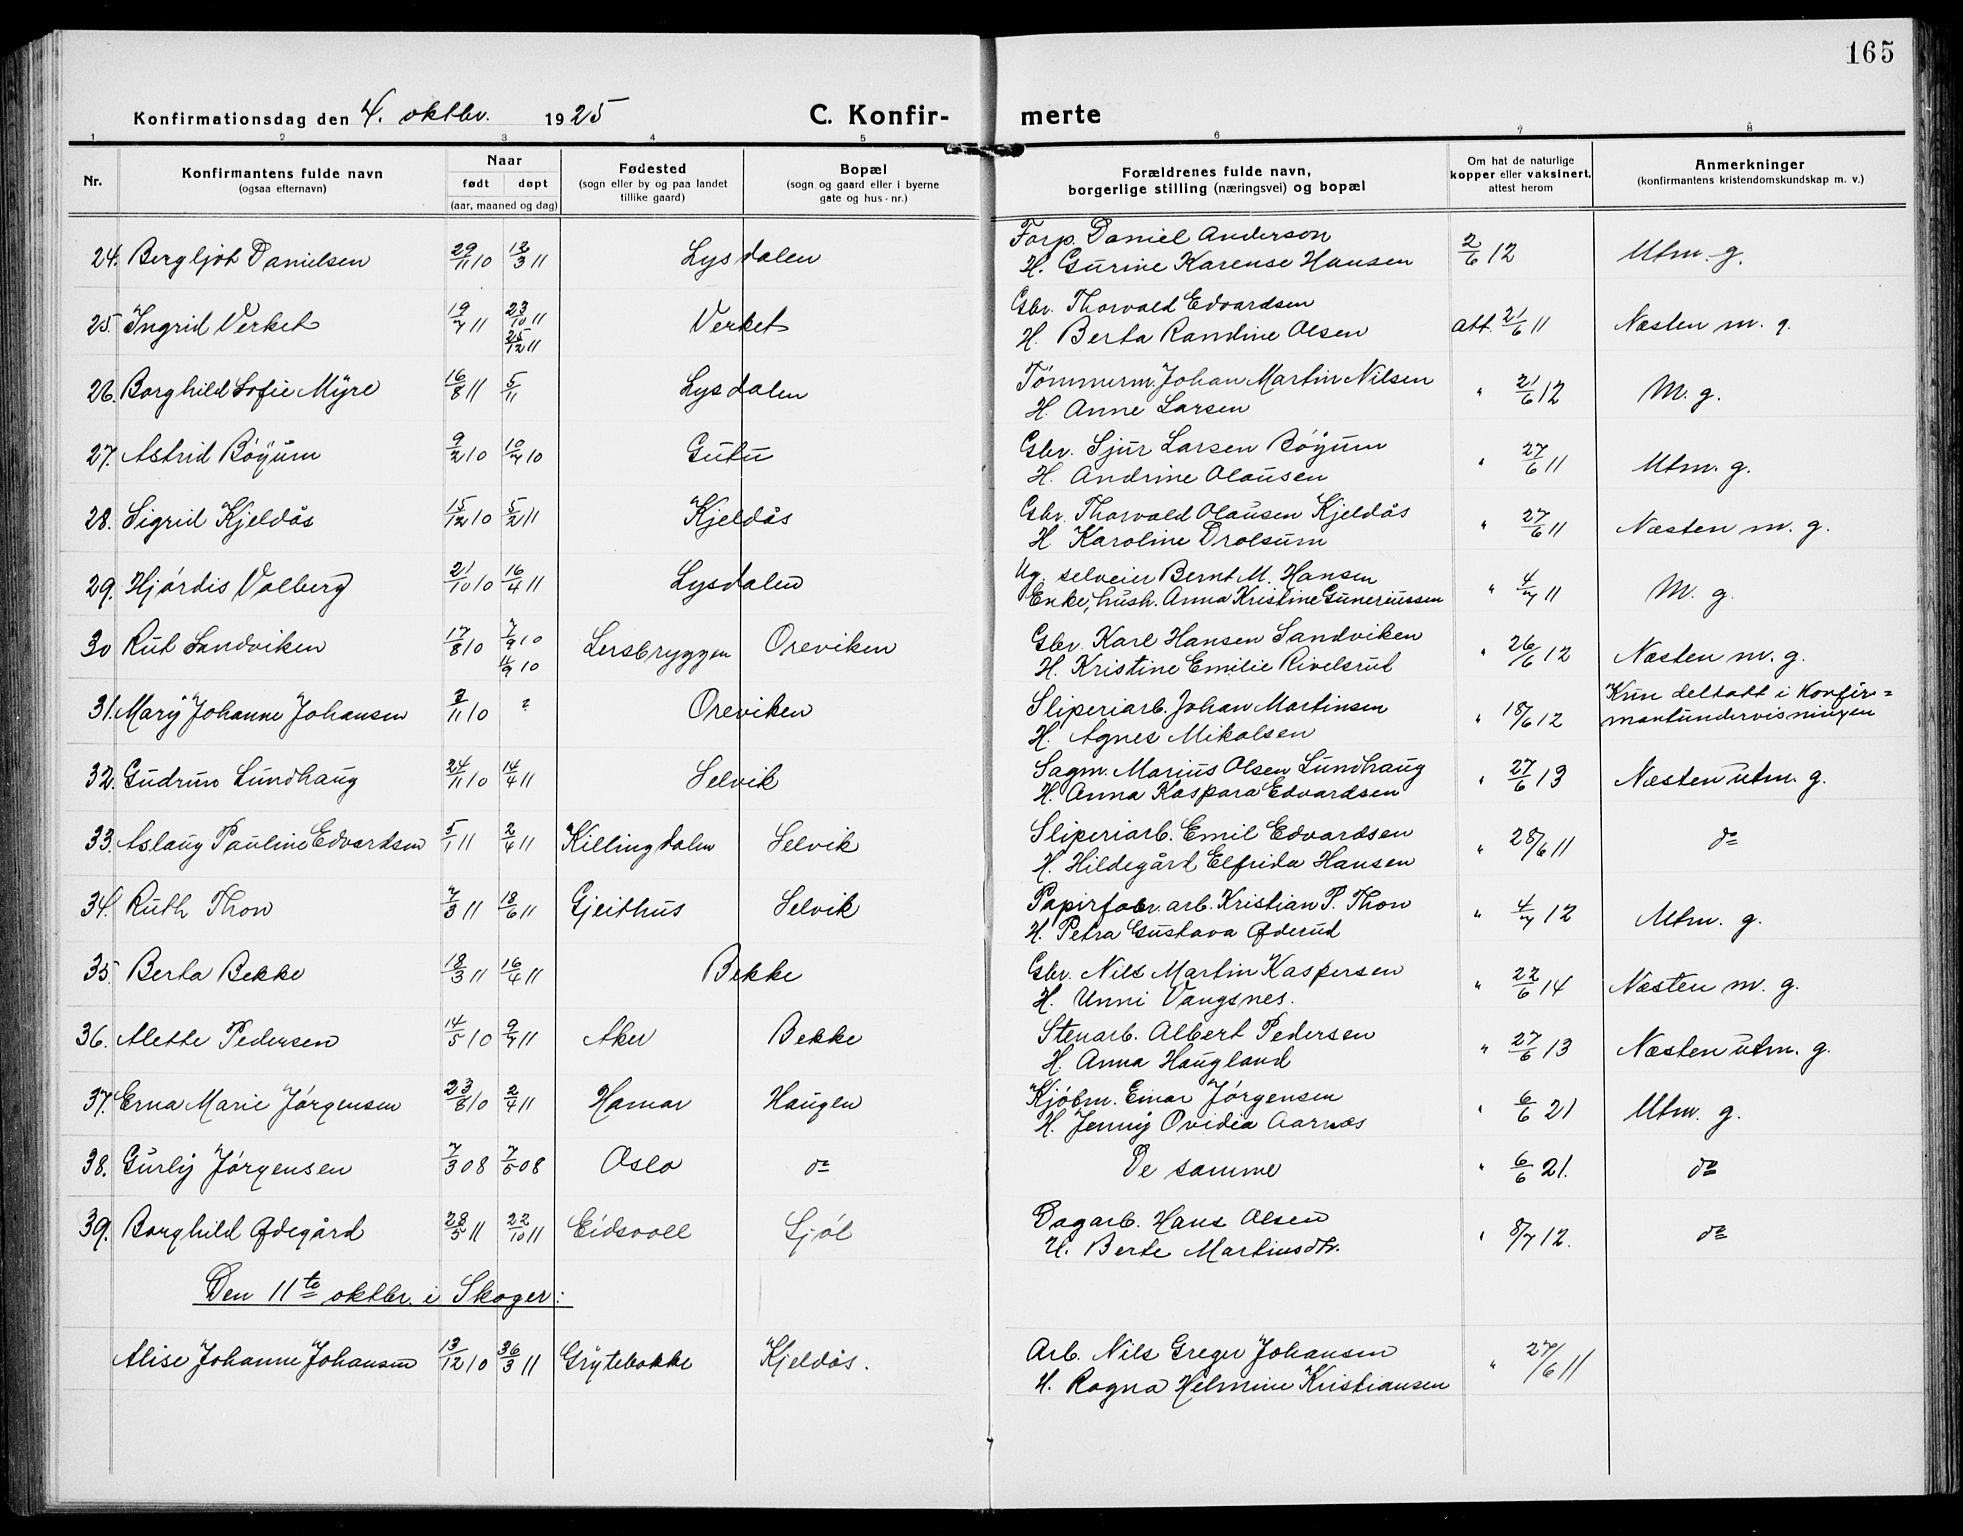 165
Konfirmationsdag den 4. oktbr. 1925
C. Konfirmerte
1 2 3 4 5 6 7 8
Nr.
Konfirmantens fulde navn
(ogsaa efternavn)
Naar
født døpt
(aar, maaned og dag)
Fødested
(sogn eller by og paa landet
tillike gaard)
Bopæl
(sogn og gaard eller i byerne
gate og hus-nr.)
Forældrenes fulde navn,
borgerlige stilling (næringsvei) og bopæl
Om hat de naturlige
kopper eller vaksinert,
attest herom
Anmerkninger
(konfirmantens kristendomskundskap m. v.)
24. Bergljot Danielsen 29/11 10 12/3 11 Lysdalen Forp. Daniel Anderson 2/6 12 Utm. g.
H. Gurine Karense Hansen
25. Ingrid Verket 19/7 11 23/10 11 Verket Gbr. Thorvald Edvardsen att. 21/6 11 Næsten m. g.
25/12 11 H. Berta Randine Olsen
26. Borghild Sofie Myre 16/8 11 5/11 Lysdalen Tømmerm. Johan Martin Nilsen " 21/6 12 M. g.
H. Anne Larsen
27. Astrid Bøyum 9/2 10 10/7 10 Gutu Gbr. Sjur Larsen Bøyum " 27/6 11 Utm. g.
H. Andrine Olausen
28. Sigrid Kjeldås 15/12 10 5/2 11 Kjeldås Gbr. Thorvald Olausen Kjeldås " 27/6 11 Næsten m. g.
H. Karoline Drolsum
29. Hjørdis Valberg 21/10 10 16/4 11 Lysdalen Ug. selveier Bernt M. Hansen " 4/7 11 M. g.
Enke, hush. Anna Kristine Guneriussen
30 Rut Sandviken 17/8 10 7/9 10 Lersbryggen Oreviken Gbr. Karl Hansen Sandviken " 26/6 12 Næsten m. g.
H. Kristine Emilie Rivelsrut
31. Mary Johanne Johansen 3/11 10 ? Oreviken Sliperiarb. Johan Martinsen " 18/6 12 Kun deltatt i Konfir=
H. Agnes Mikalsen mantundervisningen
32. Gudrun Lundhaug 24/11 10 14/4 11 Selvik Sagm. Marius Olsen Lundhaug " 27/6 13 Næsten utm. g.
H. Anna Kaspara Edvardsen
33. Aslaug Pauline Edvardsen 5/1 11 2/4 11 Killingdalen Selvik Sliperiarb. Emil Edvardsen " 28/6 11 do
H. Hildegård Elfrida Hansen
34. Ruth Thon 7/3 11 18/6 11 Gjeithus Selvik Papirfabr. arb. Kristian P. Thon " 4/7 12 Utm. g.
H. Petra Gustava Øderud
35 Berta Bekke 18/3 11 16/4 11 Bekke Gbr. Nils Martin Kaspersen " 22/6 14 Næsten m. g.
H. Unni Vangsnes.
36. Alette Pedersen 14/5 10 9/7 11 Aker Bekke Stenarb. Albert Pedersen " 27/6 13 Næsten utm. g.
H. Anna Haugland
37. Erna Marie Jørgensen 23/8 10 2/4 11 Hamar Haugen Kjøbm. Einar Jørgensen " 6/6 21 Utm. g.
H. Jenny Ovidia Aarnæs
38. Gurly Jørgensen 7/3 08 7/6 08 Oslo do De samme " 6/6 21. do
39. Borghild Ødegård 28/5 11 22/10 11 Eidsvoll Sjøl Dagarb. Hans Olsen " 8/7 12. do
H. Berte Martinsdtr.
Den 11te oktbr. i Skoger:
Alise Johanne Johansen 13/12 10 36/3 11 Grytebakke Kjeldås. Arb. Nils Greger Johansen " 27/6 11
H. Ragna Helmine Kristiansen